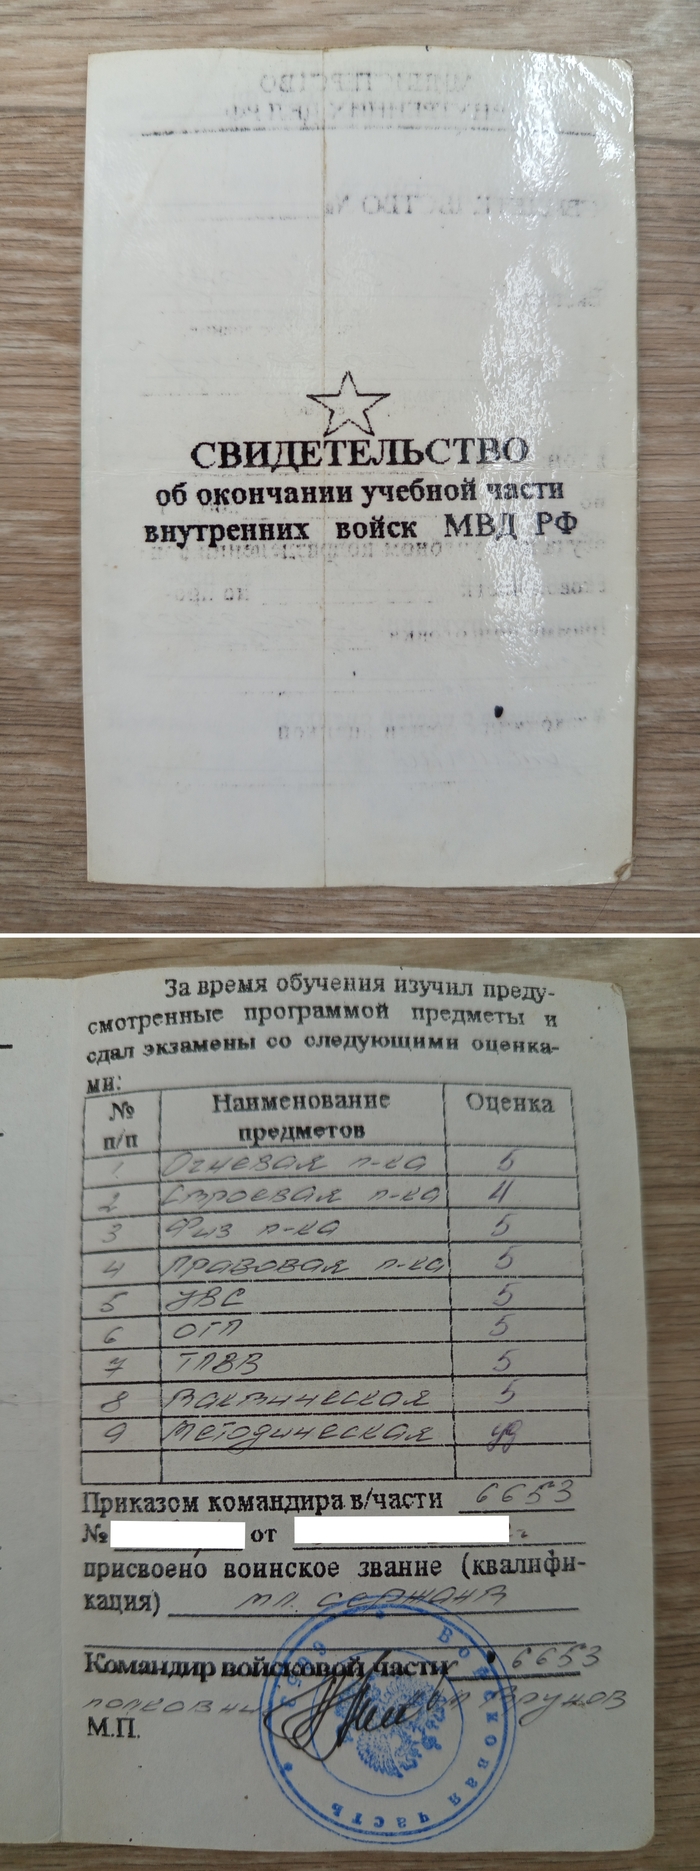 СВИДЕТЕЛЬСТВО
об окончании учебной части
внутренних войск МВД РФ
За время обучения изучил преду-
смотренные программой предметы и
сдал экзамены со следующими оценка-
ми:
№ п/п Наименование предметов Оценка
1 Огневая п-ка 5
2 Строевая п-ка 4
3 Физ п-ка 5
4 Правовая п-ка 5
5 УВС 5
6 ОГП 5
7 ТПВВ 5
8 Тактическая 5
9 Методическая уд
Приказом командира в/части 6653
№ от г
присвоено воинское звание (квалифи-
кация) мл. сержант
Командир войсковой части 6653
полковник
М.П.
Войсковая часть 6653